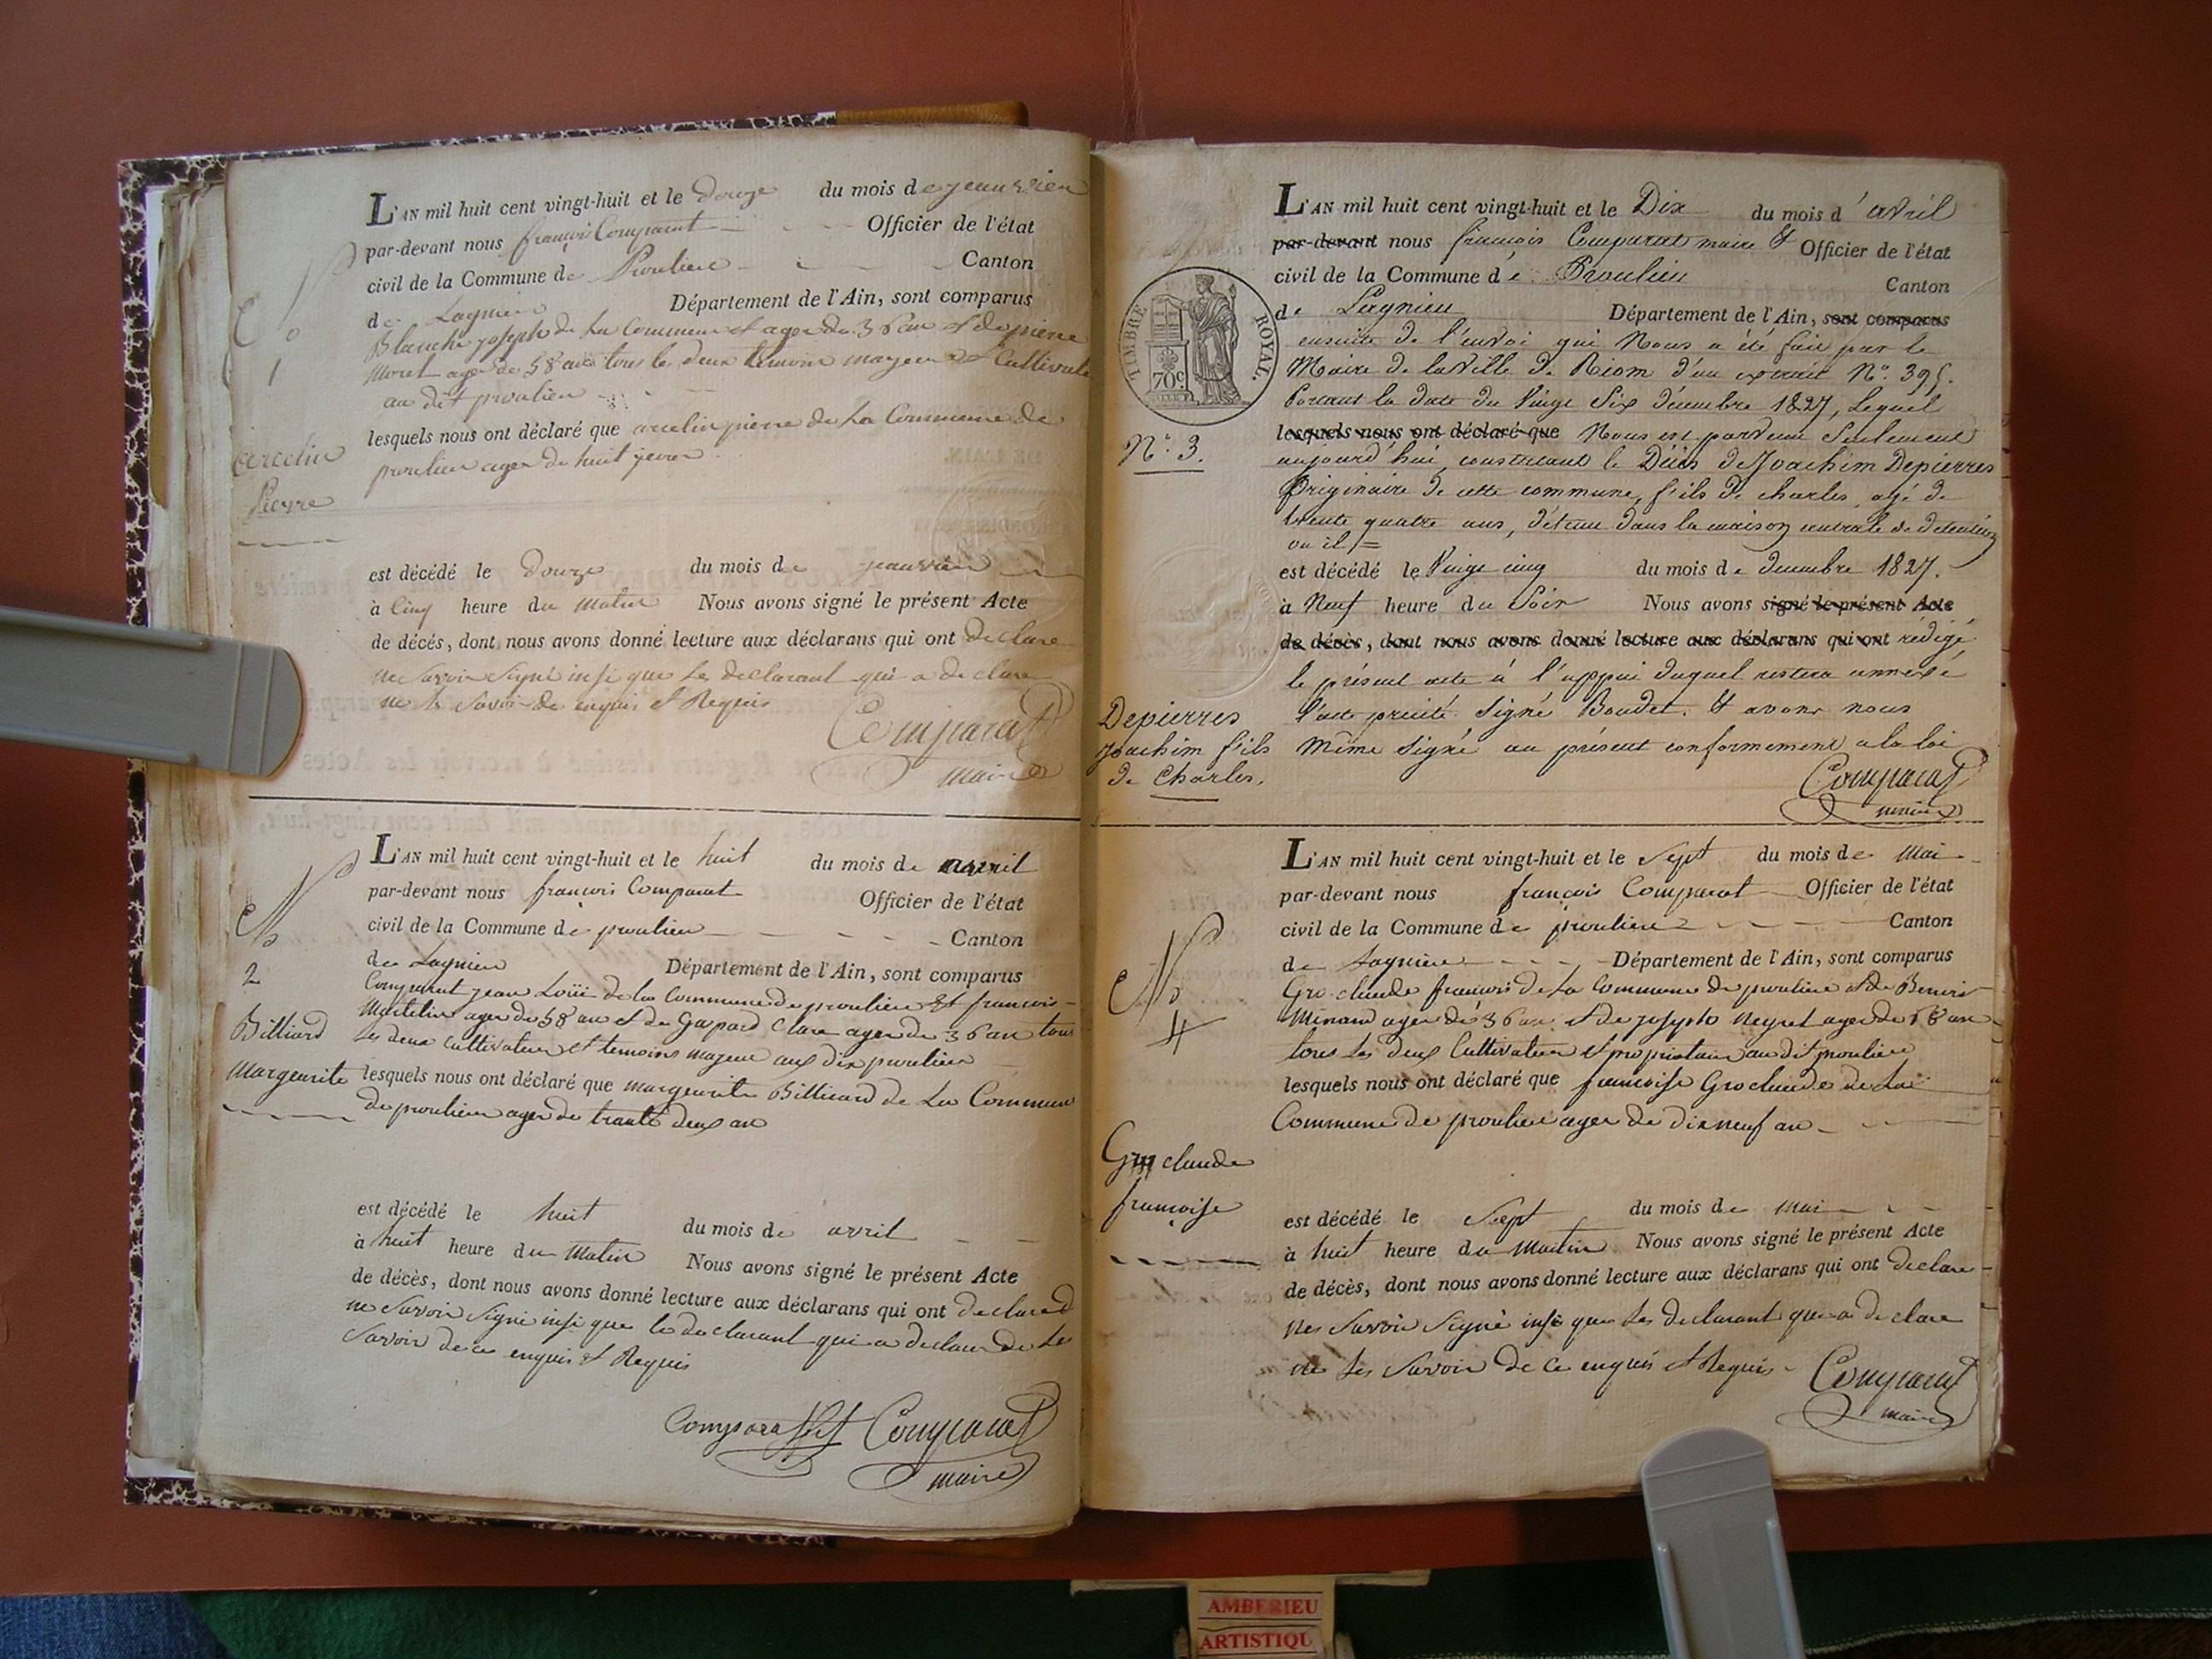 L'AN mil huit cent vingt-huit et le douze du mois de jeanvien
par-devant nous françois Comparat Officier de l'état
civil de la Commune de Proulieu Canton
de Lagnieu Département de l'Ain, sont comparus
Blanche joseph de La Commune et agee de 36 an et de pierre
Moret agee de 58 ans tous les deux temoins majeur et Cultivate
au dit proulieu
lesquels nous ont déclaré que arcelin pierre de La Commune de
proulieu agee de huit
N° 1
arcelin
Pierre
est décédé le douze du mois de jeanvien
à Cinq heure du Matin Nous avons signé le présent Acte
de décés, dont nous avons donné lecture aux déclarans qui ont declare
ne Savoir Signé insi que Les declarant qui a declare
ne le Savoir de enquis et Requis
Comparat
maire
L'AN mil huit cent vingt-huit et le huit du mois de avril
par-devant nous françois Comparat Officier de l'état
civil de la Commune de proulieu Canton
de Lagnieu Département de l'Ain, sont comparus
Comparat jean Loüi de la Commune de proulieu Et francois
Martelin agee de 58 an et de Gaspard Clare agee de 36 an tous
Les deux Cultivateur et temoins majeur aux dit proulieu
lesquels nous ont déclaré que margeurite Billiard de La Commune
de proulieu agee de trante deux an
N° 2
Billiard
Margeurite
est décédé le huit du mois de avril
à huit heure du Matin Nous avons signé le présent Acte
de décès, dont nous avons donné lecture aux déclarans qui ont declared
ne Savoir Signé insi que le declarant qui a declare de Le
Savoir de ce enquis et Requis
Comparat Comparat
maire
L'AN mil huit cent vingt-huit et le Dix du mois d'avril
par-devant nous françois Comparat maire & Officier de l'état
civil de la Commune de Proulieu Canton
de Lagnieu Département de l'Ain, sont comparus
ensuite de l'envoi qui Nous a été fait par le
Maire de la Ville de Riom d'un extrait N° 395.
Portant la date du Vingt Six décembre 1827, Lequel
lesquels nous ont déclaré que Nous est parvenu Seulement
aujourd'hui, constatant le Décès de Joachim Depierres
Originaire de cette commune, fils de charles, agé de
trente quatre ans, détenu dans la maison centrale de detention
ou il
TIMBRE ROYAL.
70c
N° 3.
est décédé le Vingt cinq du mois de decembre 1827.
à Neuf heure du Soir Nous avons signé le présent Acte
de décès, dont nous avons donné lecture aux déclarans qui ont rédigé
le présent acte à l'appui duquel restera annexé
l'acte précité Signé Boudet. & avons nous
Même Signé au présent conformement a la loi
Depierres
Joachim fils
de Charles.
Comparat
maire
L'AN mil huit cent vingt-huit et le Sept du mois de Mai
par-devant nous françois Comparat Officier de l'état
civil de la Commune de proulieu Canton
de Lagnieu Département de l'Ain, sont comparus
Gro claude francois de La Commune de proulieu et de Benoit
Minand agee de 36 an et de joseph Neyret agee de 58 an
tous Les deux Cultivateur et propriataire au dit proulieu
lesquels nous ont déclaré que francoise Gro claude de La
Commune de proulieu agee de dix neuf an
N° 4
Gro claude
francoise
est décédé le Sept du mois de Mai
à huit heure du Matin Nous avons signé le présent Acte
de décès, dont nous avons donné lecture aux déclarans qui ont declare
ne Savoir Signé insi que Les declarant que a declare
ne Les Savoir de Ce enquis et Requis
Comparat
maire
AMBERIEU
ARTISTIQU